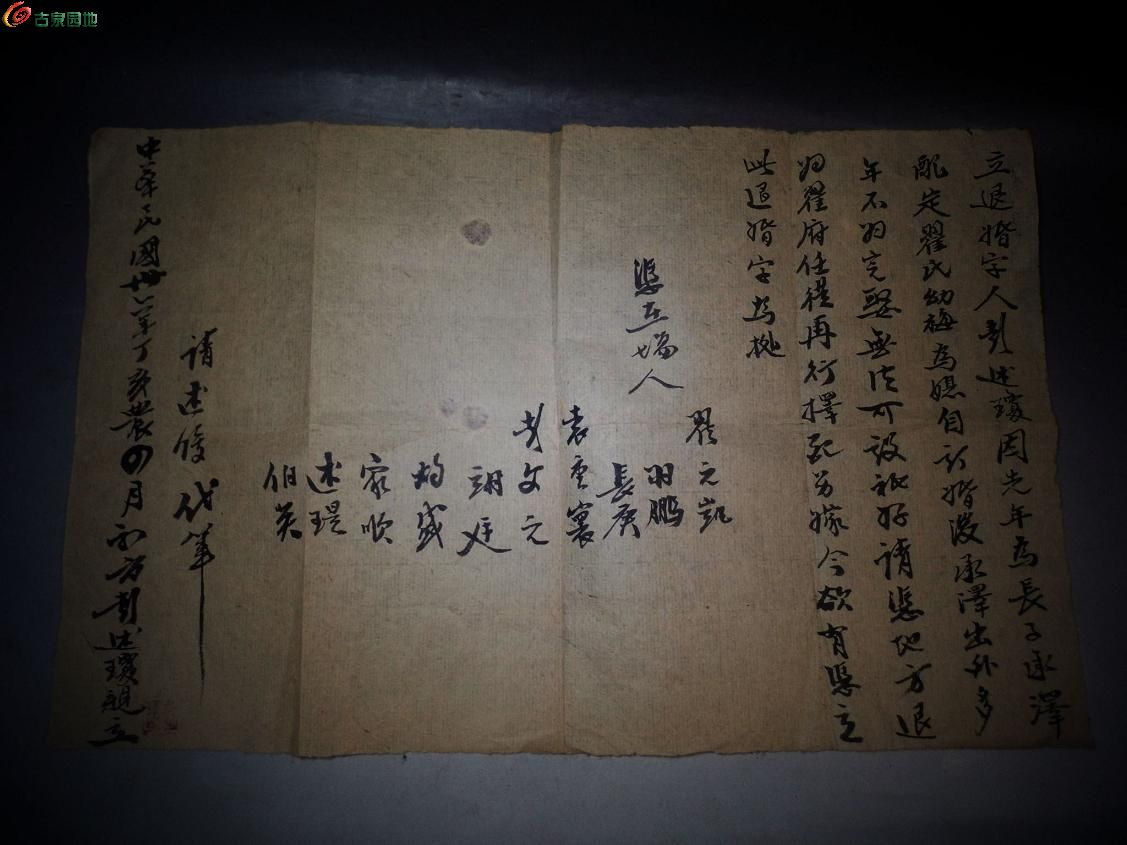 立退婚字人彭述瓊因先年為長子承澤
配定翟氏幼梅為媳自訂婚後承澤出外多
年不歸完娶無法可設祇好請憑地方退
歸翟府任從再行擇配另嫁今欲有憑立
此退婚字為據
憑在場人
翟元凱
羽鵬
長庚
袁重襄
彭文元
翊廷
炳盛
家順
述瑅
伯英
請述俊代筆
中華民國卅六年丁亥農四月初六方彭述瓊親立
古泉园地